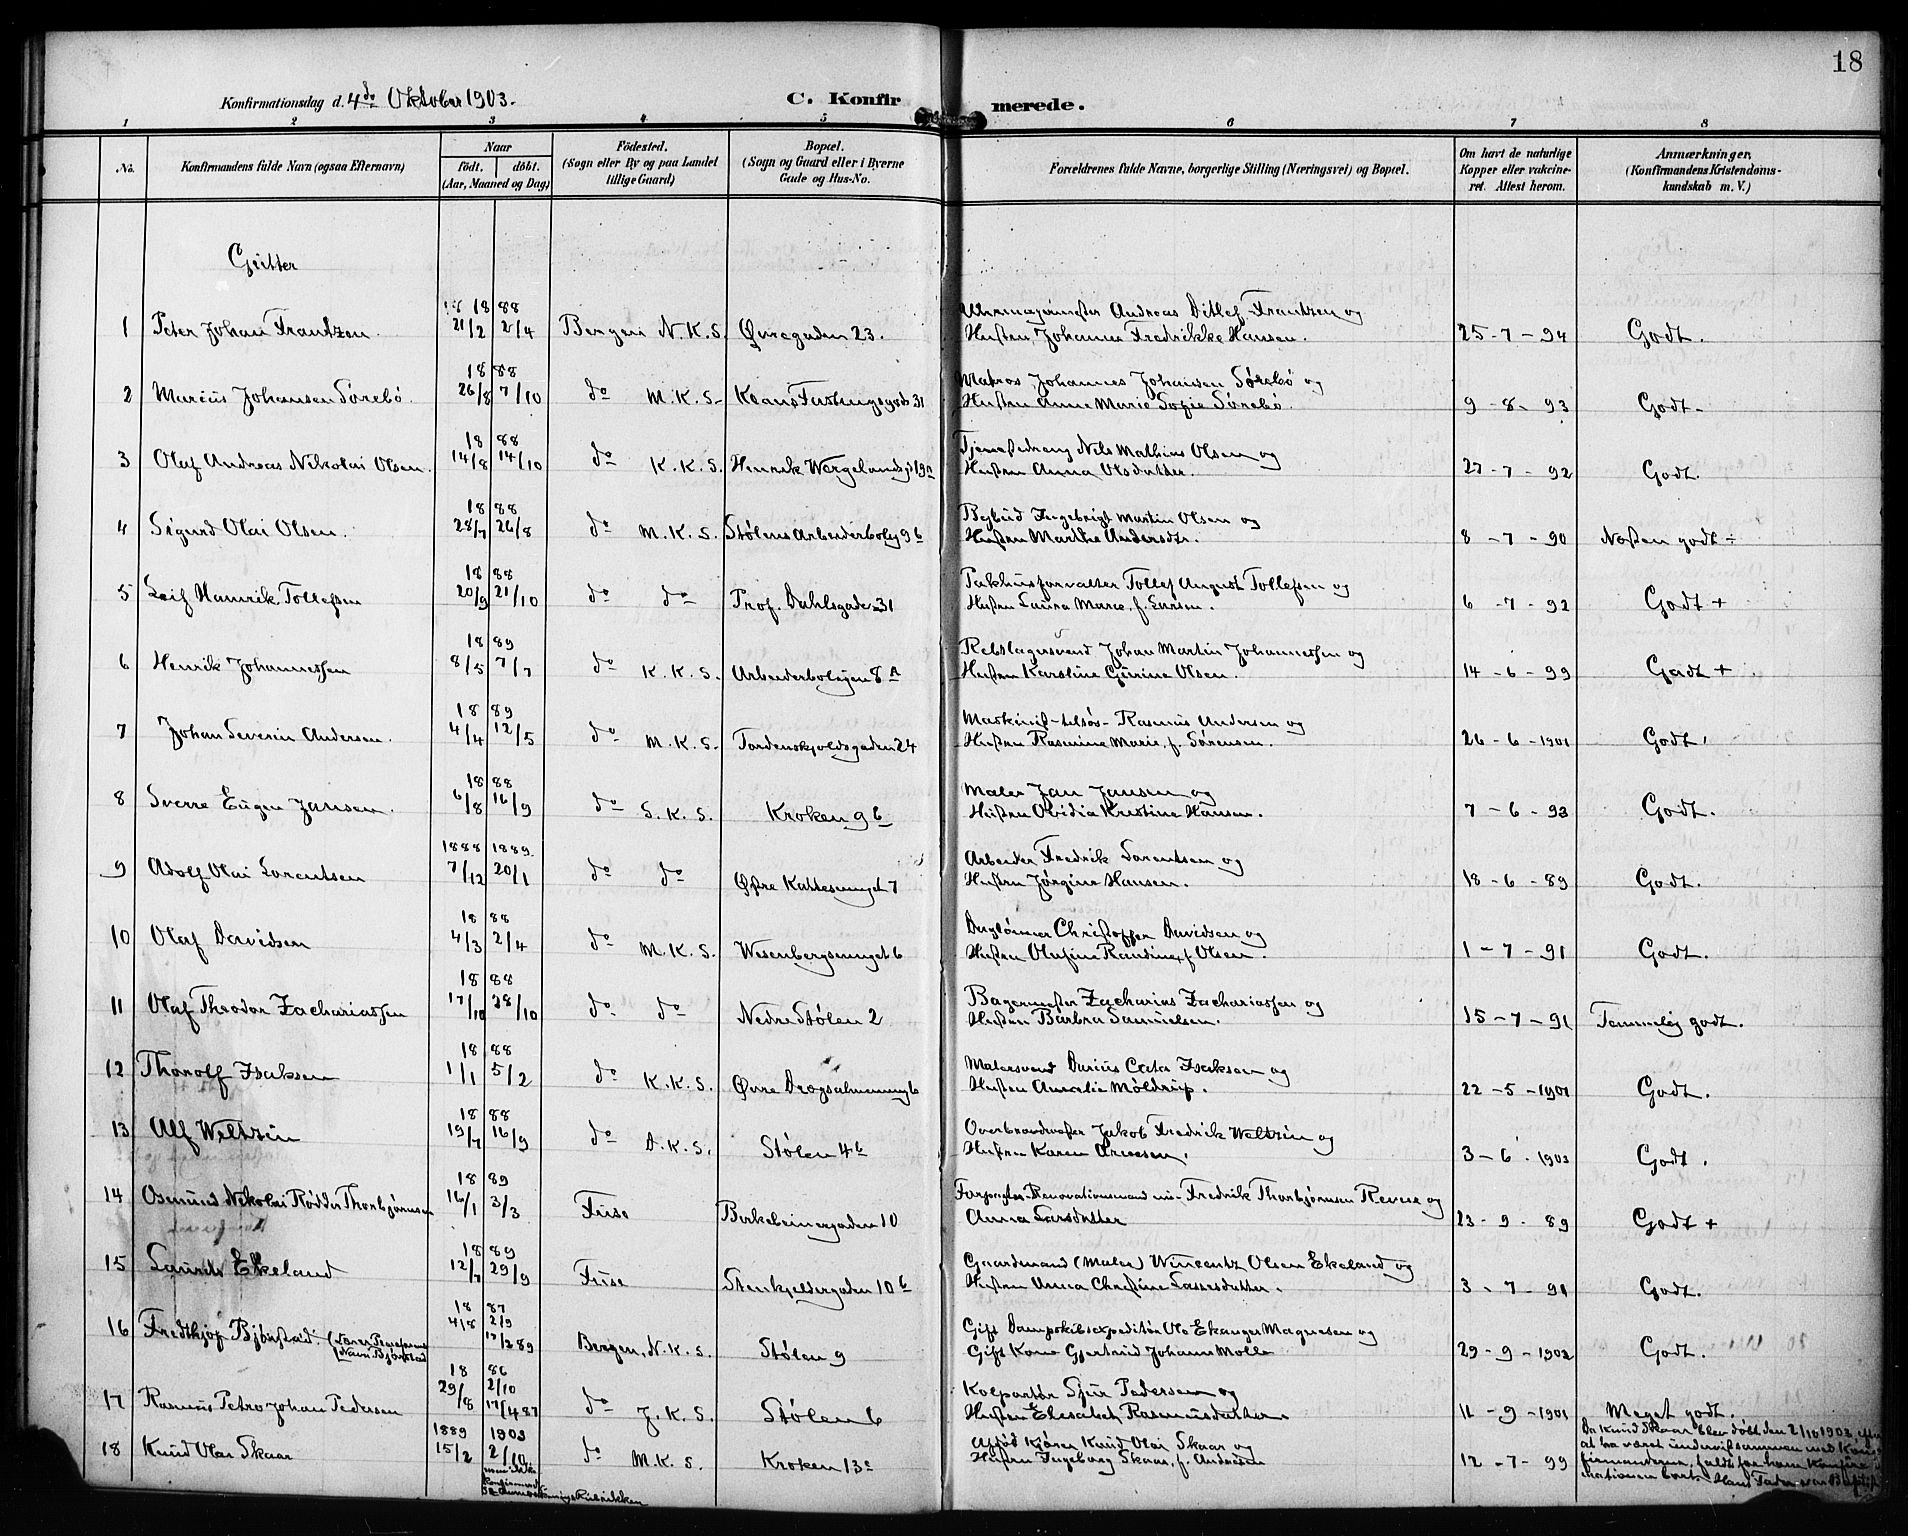 18
Konfirmationsdag d. 4de Oktober 1903.
C. Konfirmerede.
1 2 3 4 5 6 7 8
No. Konfirmandens fulde Navn (ogsaa Efternavn) Naar født. døbt. (Aar, Maaned og Dag) Fødested. (Sogn eller By og paa Landet tillige Gaard) Bopæl. (Sogn og Gaard eller i Byerne Gade og Hus-No. Forældrenes fulde Navne, borgerlige Stilling (Næringsvei) og Bopæl. Om havt de naturlige Kopper eller vakcineret. Attest herom. Anmærkninger, (Konfirmandens Kristendomskundskab m. V.)
Gutter
18 88
Uhrmagermester Andreas Ditlef Frantzen og
1 Peter Johan Frantzen. 21/2 2/4 Bergen N.K.S. Øvregaden 23. Hustru Johanne Fredrikke Hansen. 25-7-94 Godt.
18 88
Matros Johannes Johansen Sørebø og
2 Marius Johansen Sørebø. 26/8 7/10 do M.K.S. 31 Hustru Anne Marie Sofie Sørebø. 9-8-93 Godt.
18 88
Nils Mathius Olsen og
3 Olaf Andreas Nikolai Olsen. 14/8 14/10 do K.K.S. Henrik Wergelandsg 19a Hustru Anna Olsdatter. 27-7-92 Godt.
18 88
Bybud Ingebrigt Martin Olsen og
4 Sigurd Olai Olsen. 28/7 26/8 do M.K.S. Stølens Arbeiderbolig 9b Hustru Martha Andersdtr. 8-7-90 Næsten godt ÷
18 88
Pakhusforvalter Tollef August Tollefsen og
5 Leif Henrik Tollefsen 20/9 21/10 do do Prof. Dahlsgaden 31 Hustru Laura Marie, f. Larsen. 6-7-92 Godt +
18 89
Rebslagersvend Johan Martin Johannessen og
6 Henrik Johannessen 8/5 7/7 do K.K.S. Arbeiderboligen 8A Hustru Karoline Gurine Olsen. 14-6-99 Godt +
18 89
Rasmus Andersen og
7 Johan Severin Andersen. 4/4 12/5 do M.K.S. Tordenskjoldsgaden 24 Hustru Rasmine Marie, f. Sørensen. 26-6-1901 Godt.
18 88
Maler Jan Jansen og
8 Sverre Eugen Jansen. 6/8 16/9 do S.K.S. Kroken 9b Hustru Ovidia Kristine Hansen. 7-6-93 Godt.
1888 1889
Arbeider Fredrik Lorentsen og
9 Adolf Olai Lorentsen 7/12 20/1 do do Østre Kattesmuget 7 Hustru Jørgine Hansen. 18-6-89 Godt.
18 88
Christoffer Davidsen og
10 Olaf Davidsen 4/3 2/4 do M.K.S. Wesenbergsmuget 6 Hustru Olufine Randine, f Olsen. 1-7-91 Godt.
18 88
Bagermester Zacharius Zachariassen og
11 Olaf Theodor Zachariassen 17/10 28/10 do do Nedre Stølen 2 Hustru Barbra Samuelsen. 15-7-91 Temmelig godt.
18 88
Malersvend Darius Isaksen og
12 Thorolf Isaksen 1/1 5/2 do K.K.S. Øvre Dragsalmenning 6 Hustru Amalie Møldrup. 22-5-1901 Godt.
18 88
Overbrandmester Jakob Fredrik Weltzin og
13 Alf Weltzin 19/7 16/9 do D.K.S. Stølen 4b Hustru Karen Arnesen. 3-6-1903 Godt.
18 89
Fredrik Thorbjørnsen Revese og
14 Osmund Nikolai Rødder Thorbjørnsen 16/1 3/3 Fuse Birkebeinergaden 10 Anna Larsdatter 23-9-89 Godt +
18 89
Gaardmand (Maler) Wincentz Olsen Ekeland og
15 Laurits Ekeland 12/7 29/9 Fuse Stenkjeldergaden 10b Hustru Anna Christine Lassesdatter. 3-7-91 Godt.
18 87
Gift Dampskibsexpeditør Ole Ekanger Magnesen og
16 Fredthjof Bjørstad. 4/8 2/9 17/2 89 Bergen, N.K.S. Stølen 9 Gift Kone Gjertrud Johanne Molle 29-9-1902 Godt.
18 86
Kolportør Sjur Pedersen og
17 Rasmus Petro Johan Pedersen 29/8 2/10 17/4 87 do J.K.S. Stølen 6 Hustru Elisabeth Rasmusdatter 11-9-1901 Meget godt.
1889 1903
Kjører Knud Olai Skaar og
18 Knud Olai Skaar 15/2 2/10 do M.K.S. Kroken 13c Hustru Ingeborg Skaar, f. Andersen 12-7-99
Da Knud Skaar blev døbt den 2/10 1903, efter
at ha været undervist sammen med Konfirmanderne, faldt for ham Konfirmationen bort. Hans Fader var Baptist